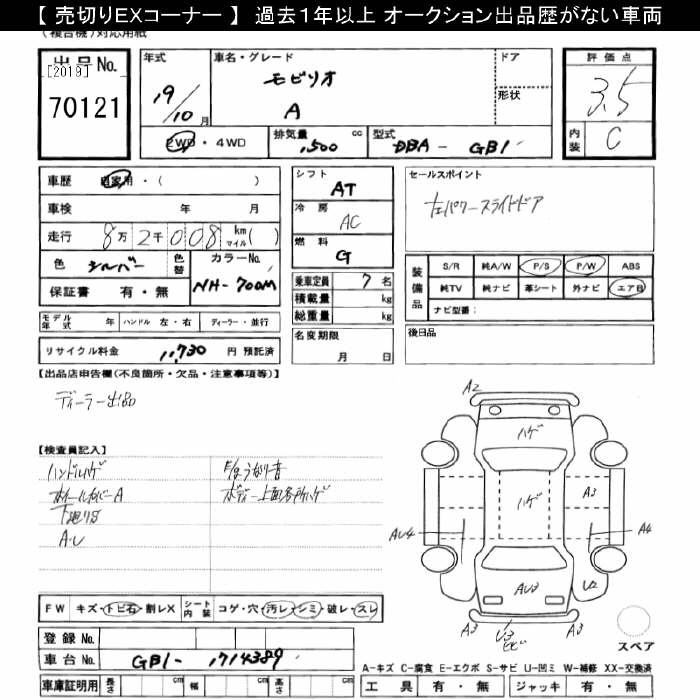 【 売切りEXコーナー 】 過去1年以上 オークション出品歴がない車両
(複合機)対応用紙
出品No.
[2019]
70121
年式
19/10月
車名・グレード
モビリオ
A
ドア
形状
評価点
3.5
内装
C
2WD・4WD
排気量 1,500 cc
型式 DBA - GB1
車歴 自家用・( )
車検 年 月
走行 8万2千008 km マイル( )
色 シルバー
色替
カラーNo. NH-700M
保証書 有・無
シフト
AT
冷房
AC
燃料
G
乗車定員 7名
積載量 kg
総重量 kg
名変期限
月 日
セールスポイント
左パワースライドドア
装備品
S/R 純A/W P/S P/W ABS
純TV 純ナビ 革シート 外ナビ エアB
ナビ型番：
後日品
モデル年式 年 ハンドル 左・右 ディーラー・並行
リサイクル料金 11,730 円 預託済
【出品店申告欄(不良箇所・欠品・注意事項等)】
ディーラー出品
【検査員記入】
ハンドルハゲ
ホイールカバーA
下廻りS
A・U
うなり音
ボディー上面各所ハゲ
A2
ハゲ
ハゲ
A3
AU4
A4
AU3
U2
A3
U3
A3
スペア
FW キズ・トビ石・割レX
シート内装 コゲ・穴・汚レ・シミ・破レ・スレ
登録No.
車台No. GB1- 1714389
車庫証明用 長さ cm 幅 cm 高さ cm
A-キズ C-腐食 E-エクボ S-サビ U-凹ミ W-補修 XX-交換済
工具 有・無 ジャッキ 有・無